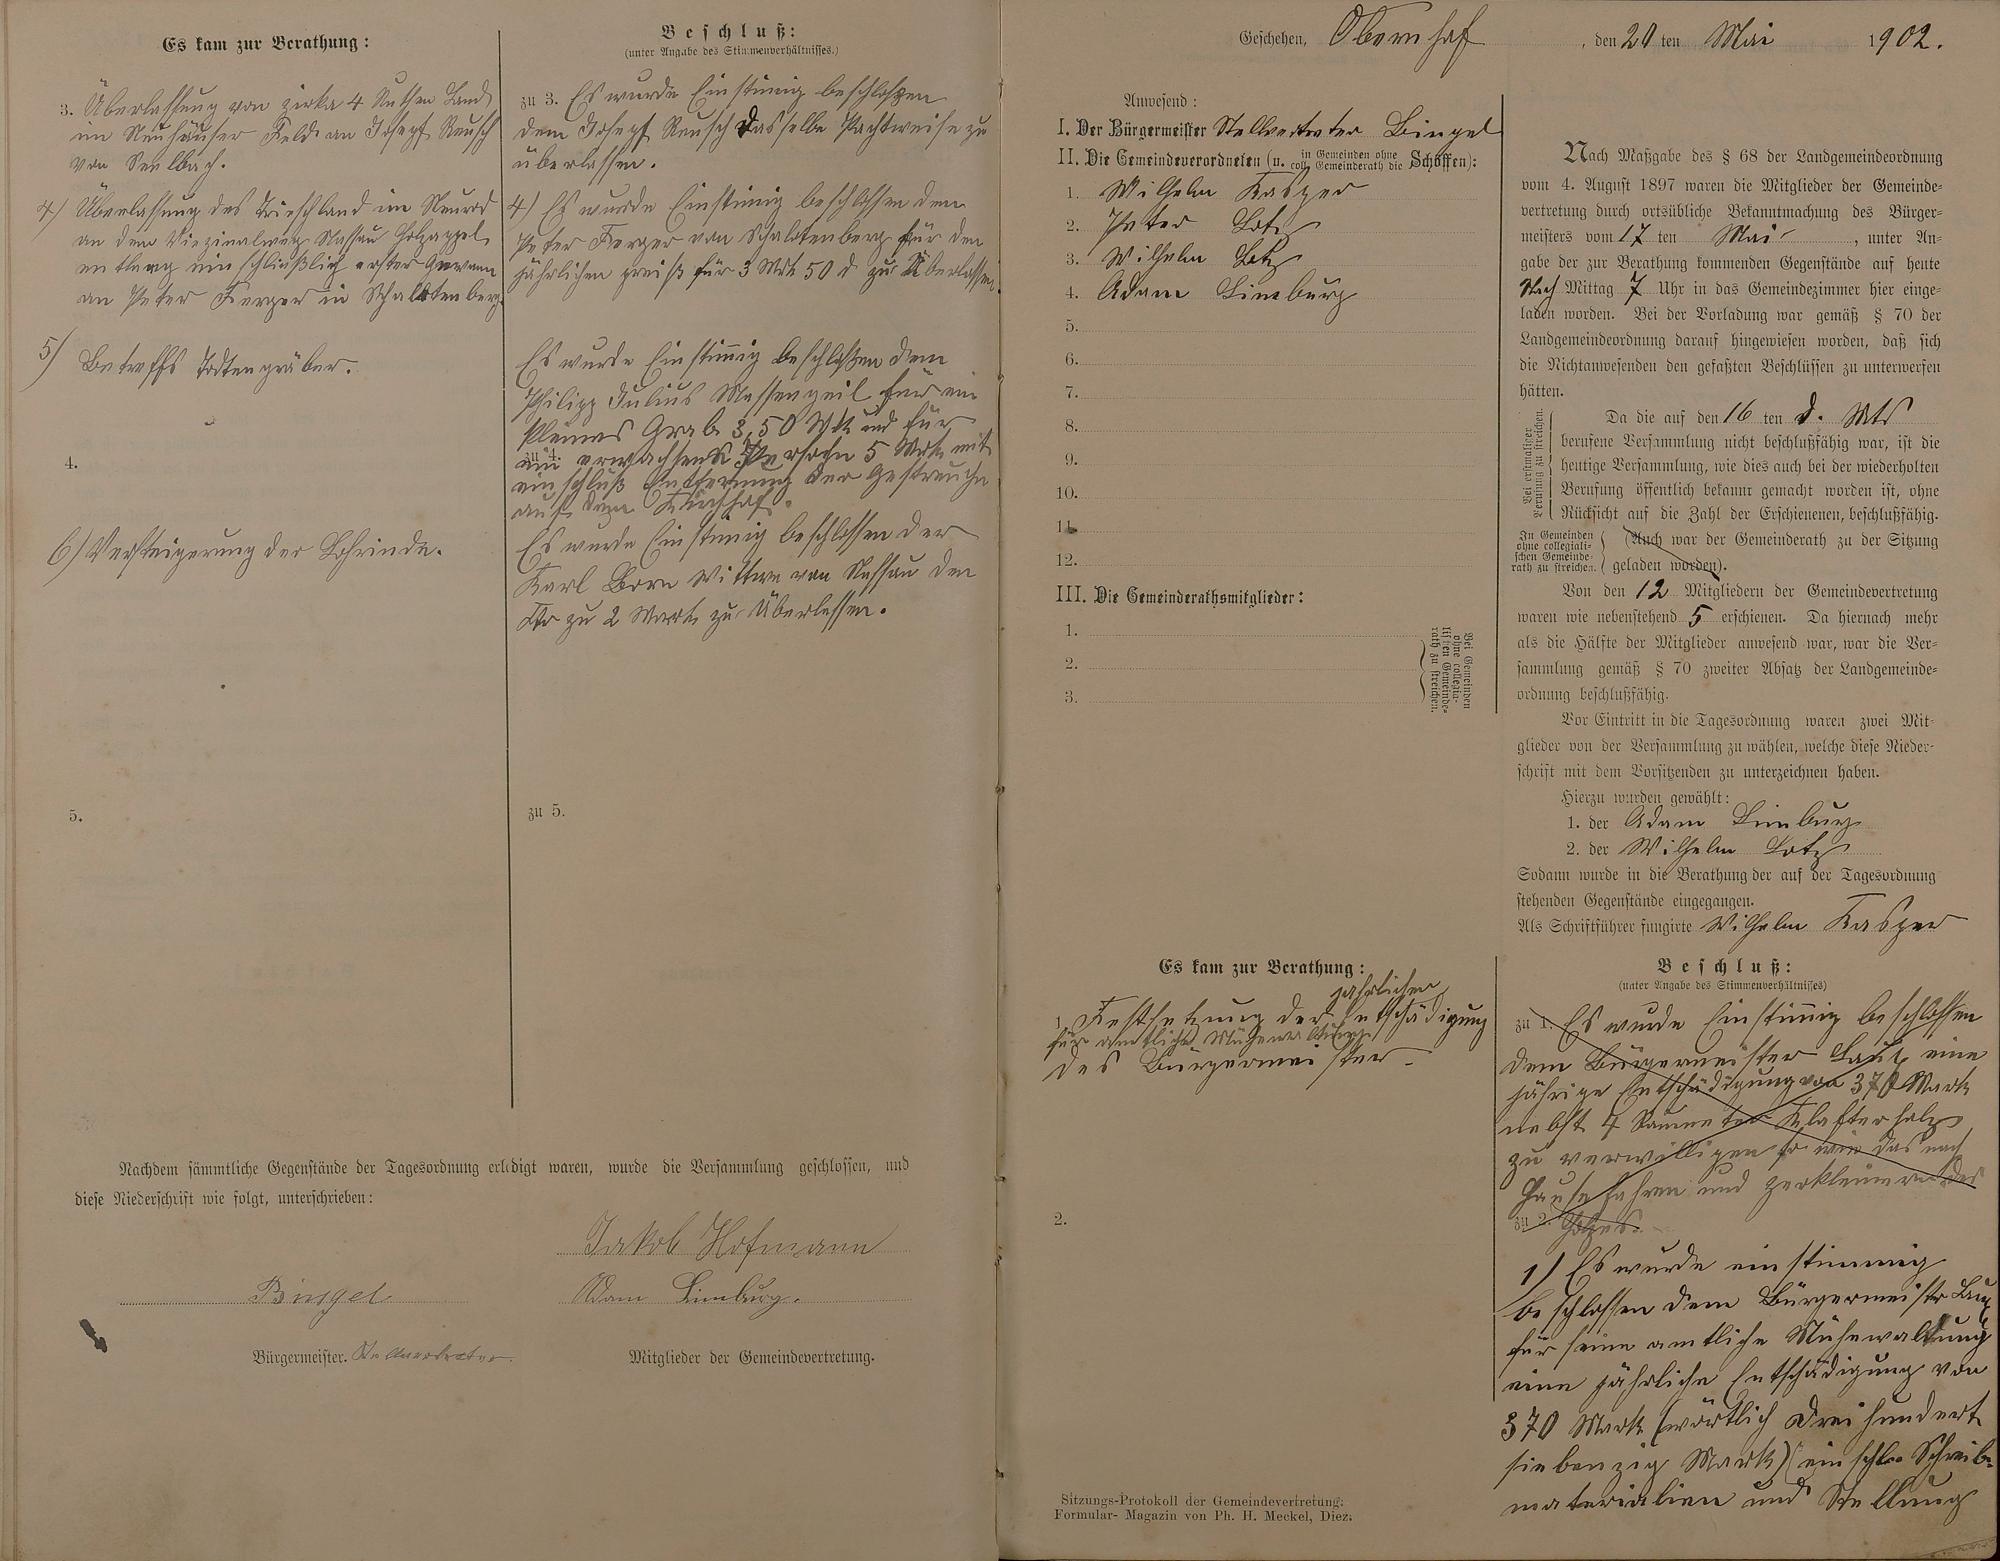 Es kam zur Berathung:
3. Überlassung von zirka 4 Ruthen Land
im Neuhäuser Feld an Josepf Reusch
von Seelbach.
4) Überlassung des Trieschland im Neurod
an dem Vizinalweg Nassau Holzappel
entlang einschließlich erster Gewann
an Peter Ferger in Schaltenberg
5) Betreffs Todtengräber.
4.
6) Versteigerung der Lohrinde.
5.
Beschluß:
(unter Angabe des Stimmenverhältnisses.)
zu 3. Es wurde Einstimig beschloßen
dem Josepf Reusch Dasselbe Pachtweise zu
überlassen.
4) Es wurde Einstimig beschlossen dem
Peter Ferger von Schalotenberg für den
jährlichen preiß für 3 Mrk 50 d zu Überlassen.
Es wurde Einstimig beschloßen dem
Philipp Julius Massengeil für ein
kleines Grab 3,50 Mrk und für
zu 4.
ein erwachsene Persohn 5 Mrk mit
einschluß Entfernung der Gestreuche
auf dem Kirchhof.
Es wurde Einstimig beschlossen der
Karl Born Wittwe von Nassau den
Ctr zu 2 Mark zu Überlassen.
zu 5.
Nachdem sämmtliche Gegenstände der Tagesordnung erledigt waren, wurde die Versammlung geschlossen, und
diese Niederschrift wie folgt, unterschrieben:
Jakob Hofmann
Bingel
Adam Limburg.
Bürgermeister. Stellvertreter.
Mitglieder der Gemeindevertretung.
Geschehen, Obernhof, den 20 ten Mai 1902.
Anwesend:
I. Der Bürgermeister Stellvertreter Bingel
II. Die Gemeindeverordneten (u. in Gemeinden ohne coll. Gemeinderath die Schöffen):
1. Wilhelm Kasper
2. Peter Lotz
3. Wilhelm Lotz
4. Adam Limburg
5.
6.
7.
8.
9.
10.
11.
12.
III. Die Gemeinderathsmitglieder:
1.
2.
3.
Bei Gemeinden
ohne collegia-
lischen Gemeinde-
rath zu streichen.
Nach Maßgabe des § 68 der Landgemeindeordnung
vom 4. August 1897 waren die Mitglieder der Gemeinde-
vertretung durch ortsübliche Bekanntmachung des Bürger-
meisters vom 17 ten Mai, unter An-
gabe der zur Berathung kommenden Gegenstände auf heute
Nach Mittag 7 Uhr in das Gemeindezimmer hier einge-
laden worden. Bei der Vorladung war gemäß § 70 der
Landgemeindeordnung darauf hingewiesen worden, daß sich
die Nichtanwesenden den gefaßten Beschlüssen zu unterwerfen
hätten.
Bei erstmaliger
Berufung zu streichen.
Da die auf den 16 ten d. Mts
berufene Versammlung nicht beschlußfähig war, ist die
heutige Versammlung, wie dies auch bei der wiederholten
Berufung öffentlich bekannt gemacht worden ist, ohne
Rücksicht auf die Zahl der Erschienenen, beschlußfähig.
In Gemeinden
ohne collegiali-
schen Gemeinde-
rath zu streichen.
(Auch war der Gemeinderath zu der Sitzung
geladen worden).
Von den 12 Mitgliedern der Gemeindevertretung
waren wie nebenstehend 5 erschienen. Da hiernach mehr
als die Hälfte der Mitglieder anwesend war, war die Ver-
sammlung gemäß § 70 zweiter Absatz der Landgemeinde-
ordnung beschlußfähig.
Vor Eintritt in die Tagesordnung waren zwei Mit-
glieder von der Versammlung zu wählen, welche diese Nieder-
schrift mit dem Vorsitzenden zu unterzeichnen haben.
Hierzu wurden gewählt:
1. der Adam Limburg
2. der Wilhelm Lotz
Sodann wurde in die Berathung der auf der Tagesordnung
stehenden Gegenstände eingegangen.
Als Schriftführer fungirte Wilhelm Kasper
Es kam zur Berathung:
jährlichen
1. Festsetzung der Entschädigung
für amtliche Mühewaltung
des Bürgermeister.
2.
Beschluß:
(unter Angabe des Stimmenverhältnisses)
zu 1. Es wurde Einstimig beschlossen
dem Bürgermeister Lautz eine
jährige Entschädigung von 370 Mark
nebst 4 Raumeter Klafterholz
zu verwilligen so wie das nach
Hause fahren und zerkleinern des
zu 2. Holzes.
1) Es wurde einstimmig
beschlossen dem Bürgermeistr Lautz
für seine amtliche Mühewaltung
eine jährliche Entschädigung von
370 Mark (wörtlich Dreihundert
siebenzig Mark) (einschl. Schreib-
materialien und Stellung
Sitzungs-Protokoll der Gemeindevertretung.
Formular-Magazin von Ph. H. Meckel, Diez.